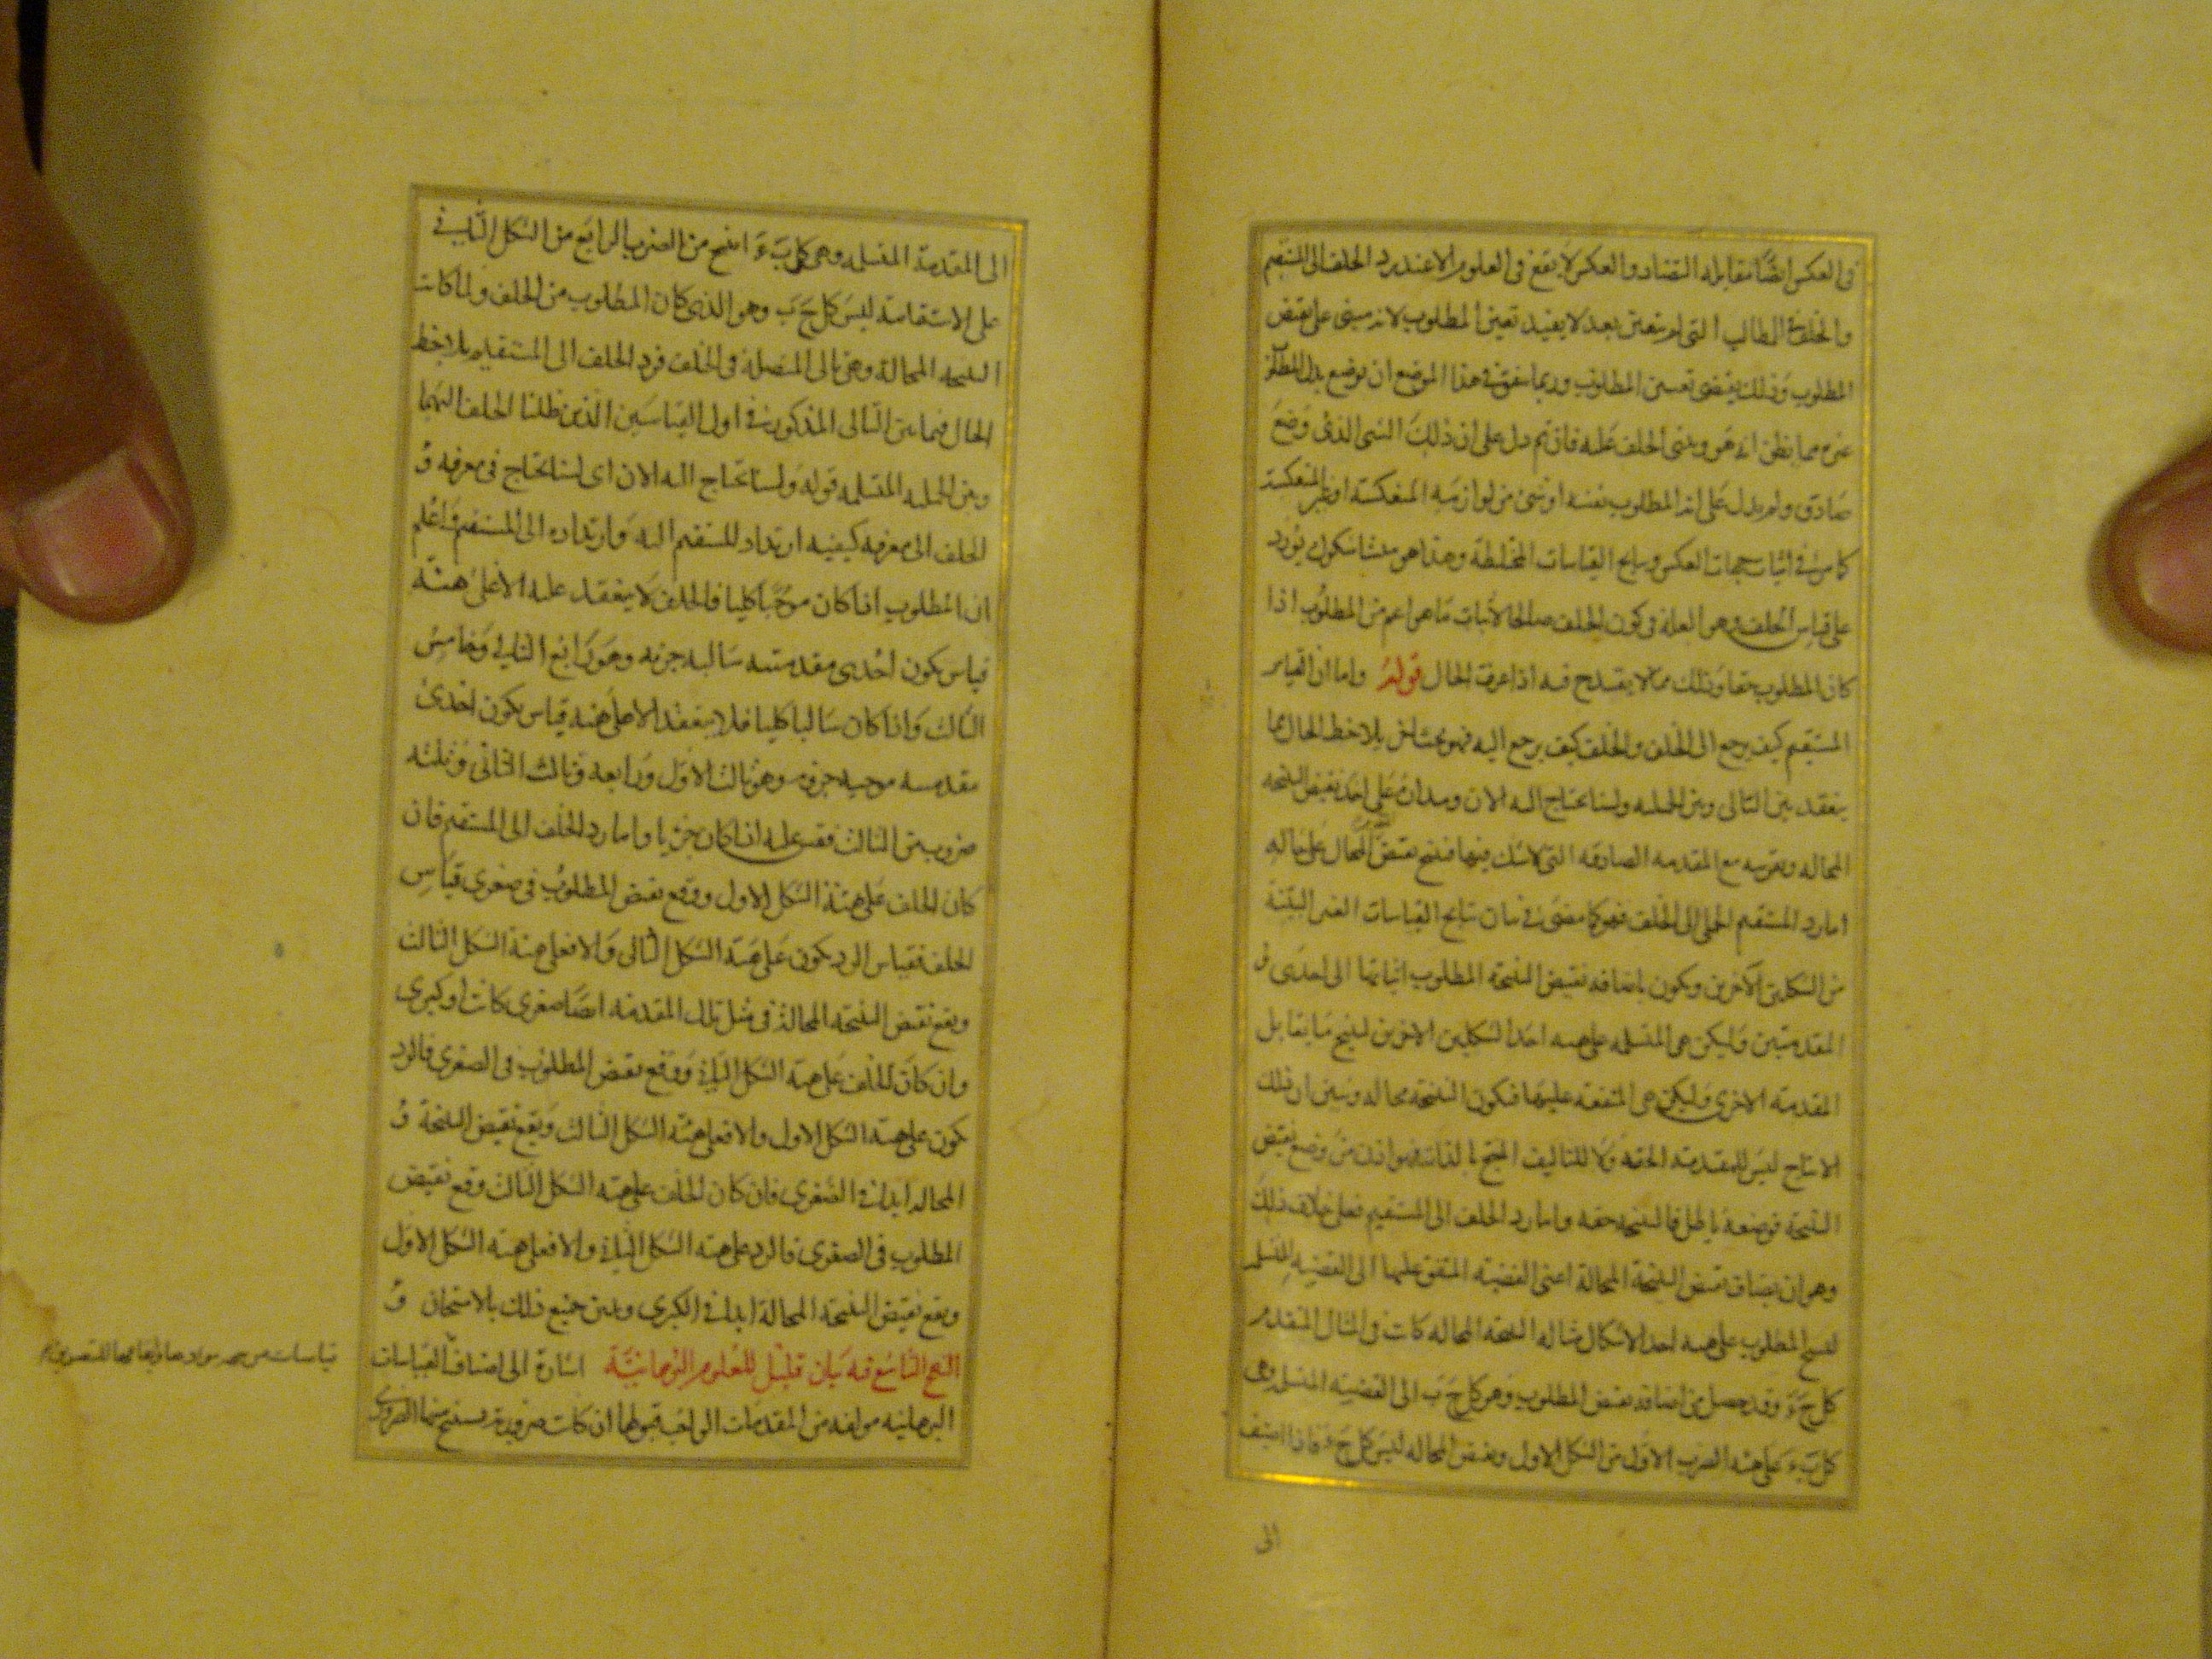 فى العكس ايضًا مقابله التضاد والعكس لا يقع فى العلوم الا عند رد الخلف الى المستقيم
والخلف فى المطالب التى لم يتعين بعد لا يفيد تعين المطلوب لانه مبنى على نقيض
المطلوب وذلك يقتضى تعيين المطلوب وربما يتفق فى هذا الموضع ان يوضع بدل المطلوب
غيره مما يظن انه هو ويبنى الخلف عليه فان تم دل على ان ذلك الشى الذى وضع
صادق ولم يدل على انه المطلوب نفسه او شى من لوازمه المنعكسة او غير المنعكسة
كما مر فى اثبات جهات العكس ونتايج القياسات المختلطة وهذا هو منشا شكوك يورد
على قياس الخلف وهو العلة فى كون الخلف صالحا لاثبات ما هو اعم من المطلوب اذا
كان المطلوب حقا وذلك مما لا يقدح فيه اذا عرف الحال قوله واما ان القياس
المستقيم كيف يرجع الى الخلف والخلف كيف يرجع اليه فهو بحث اخر يلاحظ الحال بما
ينعقد بين التالى وبين الحمليه ولسنا نحتاج اليه الان ومداره على اخذ نقيض النتيجه
المحاله وتقرينه مع المقدمه الصادقه التى لا شك فيها فينتج نقيض المحال على حاله
اما رد المستقيم الحملى الى الخلف فهو كما مضى فى بيان نتايج القياسات الغير البينة
من الشكلين الاخرين ويكون باضافه نقيض النتيجة المطلوب اثباتها الى احدى
المقدمتين وليكن هى المتسلمه على هيئه احد الشكلين الاخرين لينتج ما يقابل
المقدمة الاخرى وليكن هى المتفقه عليها فيكون النتيجة محاله وتبين ان ذلك
الانتاج ليس للمقدمة الحقه ولا للتاليف المنتج بالذات فهو اذن من وضع نقيض
النتيجة فوضعه باطل فالنتيجه حقه واما رد الخلف الى المستقيم فعلى خلاف ذلك
وهو ان يضاف نقيض النتيجة المحالة اعنى القضية المتفق عليها الى القضية المتسلمه
لينتج المطلوب على هيئه احد الاشكال مثاله النتيجة المحاله كانت فى المثال المتقدم
كل جَ ءَ وقد حصل من اضافه نقيض المطلوب وهو كل جَ بَ الى القضيه المتسلمه وهى
كل بَ ءَ على هيئه الضرب الاول من الشكل الاول ونقيض المحاله ليس كل جَ ءَ فاذا اضيف
الى
الى المقدمة المتسلمه وهى كل بَ ءَ انتج من الضرب الرابع من الشكل الثانى
على الاستقامة ليس كل جَ بَ وهو الذى كان المطلوب من الخلف ولما كانت
النتيجه المحالة وهى تالى المتصلة فى الخلف فرد الخلف الى المستقيم يلاحظ
الحال فيما بين التالى المذكور فى اول القياسين الذين حللنا الخلف اليهما
وبين الحمليه المتسلمه قوله ولسنا نحتاج اليه الان اى لسنا نحتاج فى معرفه
الخلف الى معرفه كيفيه ارتداد المستقيم اليه وارتداده الى المستقيم واعلم
ان المطلوب اذا كان موجبا كليا فالخلف لا ينعقد عليه الا على هيئة
قياس يكون احدى مقدمتيه سالبه جزئيه وهو رابع الثانى وخامس
الثالث واذا كان سالبا كليا فلا ينعقد الا على هيئة قياس يكون احدى
مقدمتيه موجبه جزئيه وهو ثالث الاول ورابعه وثالث الثانى وثلثه
ضروب من الثالث فقس عليه اذا كان جزئيا واما رد الخلف الى المستقيم فان
كان الخلف على هيئة الشكل الاول ووقع نقيض المطلوب فى صغرى قياس
الخلف فقياس الرد يكون على هيئة الشكل الثانى والا فعلى هيئة الشكل الثالث
ويقع نقيض النتيجه المحالة فى مثل تلك المقدمة ايضا صغرى كانت او كبرى
وان كان الخلف على هيئة الشكل الثانى ووقع نقيض المطلوب فى الصغرى فالرد
يكون على هيئة الشكل الاول والا فعلى هيئة الشكل الثالث ويقع نقيض النتيجة
المحاله ابدا فى الصغرى فان كان الخلف على هيئه الشكل الثالث ووقع نقيض
المطلوب فى الصغرى فالرد على هيئه الشكل الثانى والا فعلى هيئه الشكل الاول
ويقع نقيض النتيجة المحالة ابدا فى الكبرى وتبين جميع ذلك بالامتحان
النهج التاسع فيه بيان قليل للعلوم البرهانيّة اشارة الى اصناف القياسات
البرهانيه مولفه من المقدمات الواجب قبولها ان كانت ضرورية يستنتج منها الضرورى
القياسات من جهه موادها وايقاعها للتصديق